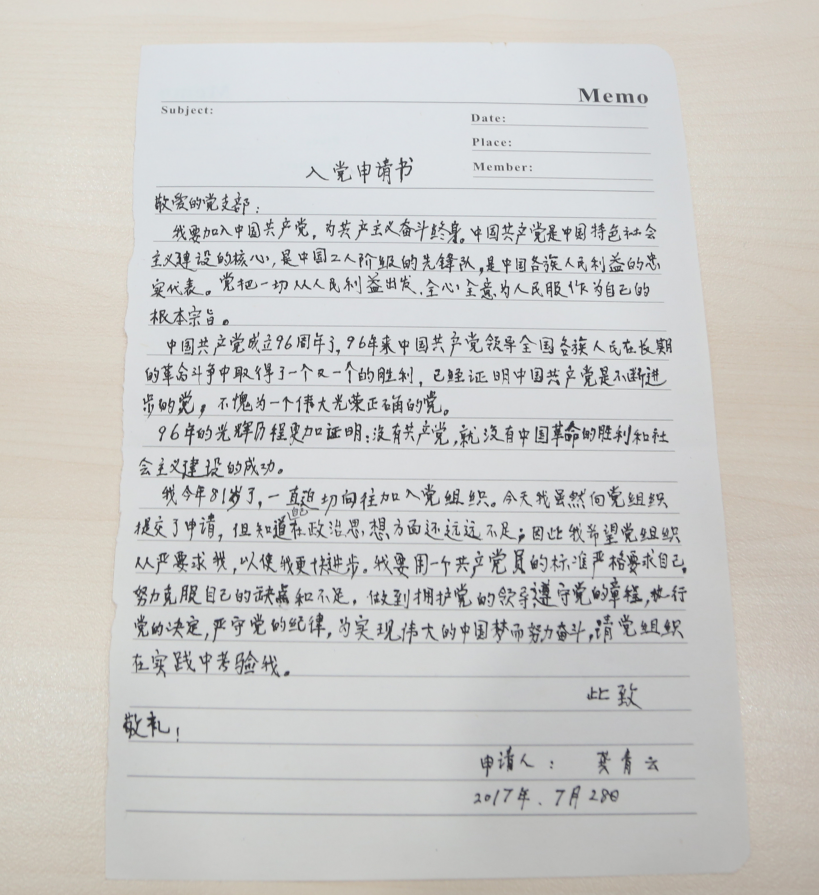 Memo
Subject:
Date:
Place:
Member:
入党申请书
敬爱的党支部：
我要加入中国共产党，为共产主义奋斗终身。中国共产党是中国特色社会
主义建设的核心，是中国工人阶级的先锋队，是中国各族人民利益的忠
实代表。党把一切从人民利益出发，全心全意为人民服作为自己的
根本宗旨。
中国共产党成立96周年了，96年来中国共产党领导全国各族人民在长期
的革命斗争中取得了一个又一个的胜利，已经证明中国共产党是不断进
步的党，不愧为一个伟大光荣正确的党。
96年的光辉历程更加证明：没有共产党，就没有中国革命的胜利和社
会主义建设的成功。
我今年81岁了，一直迫切向往加入党组织。今天我虽然向党组织
提交了申请，但知道自己在政治思想方面还远远不足；因此我希望党组织
从严要求我，以使我更快进步。我要用一个共产党员的标准严格要求自己，
努力克服自己的缺点和不足，做到拥护党的领导遵守党的章程，执行
党的决定，严守党的纪律，为实现伟大的中国梦而努力奋斗，请党组织
在实践中考验我。
此致
敬礼！
申请人：龚青云
2017年．7月28日